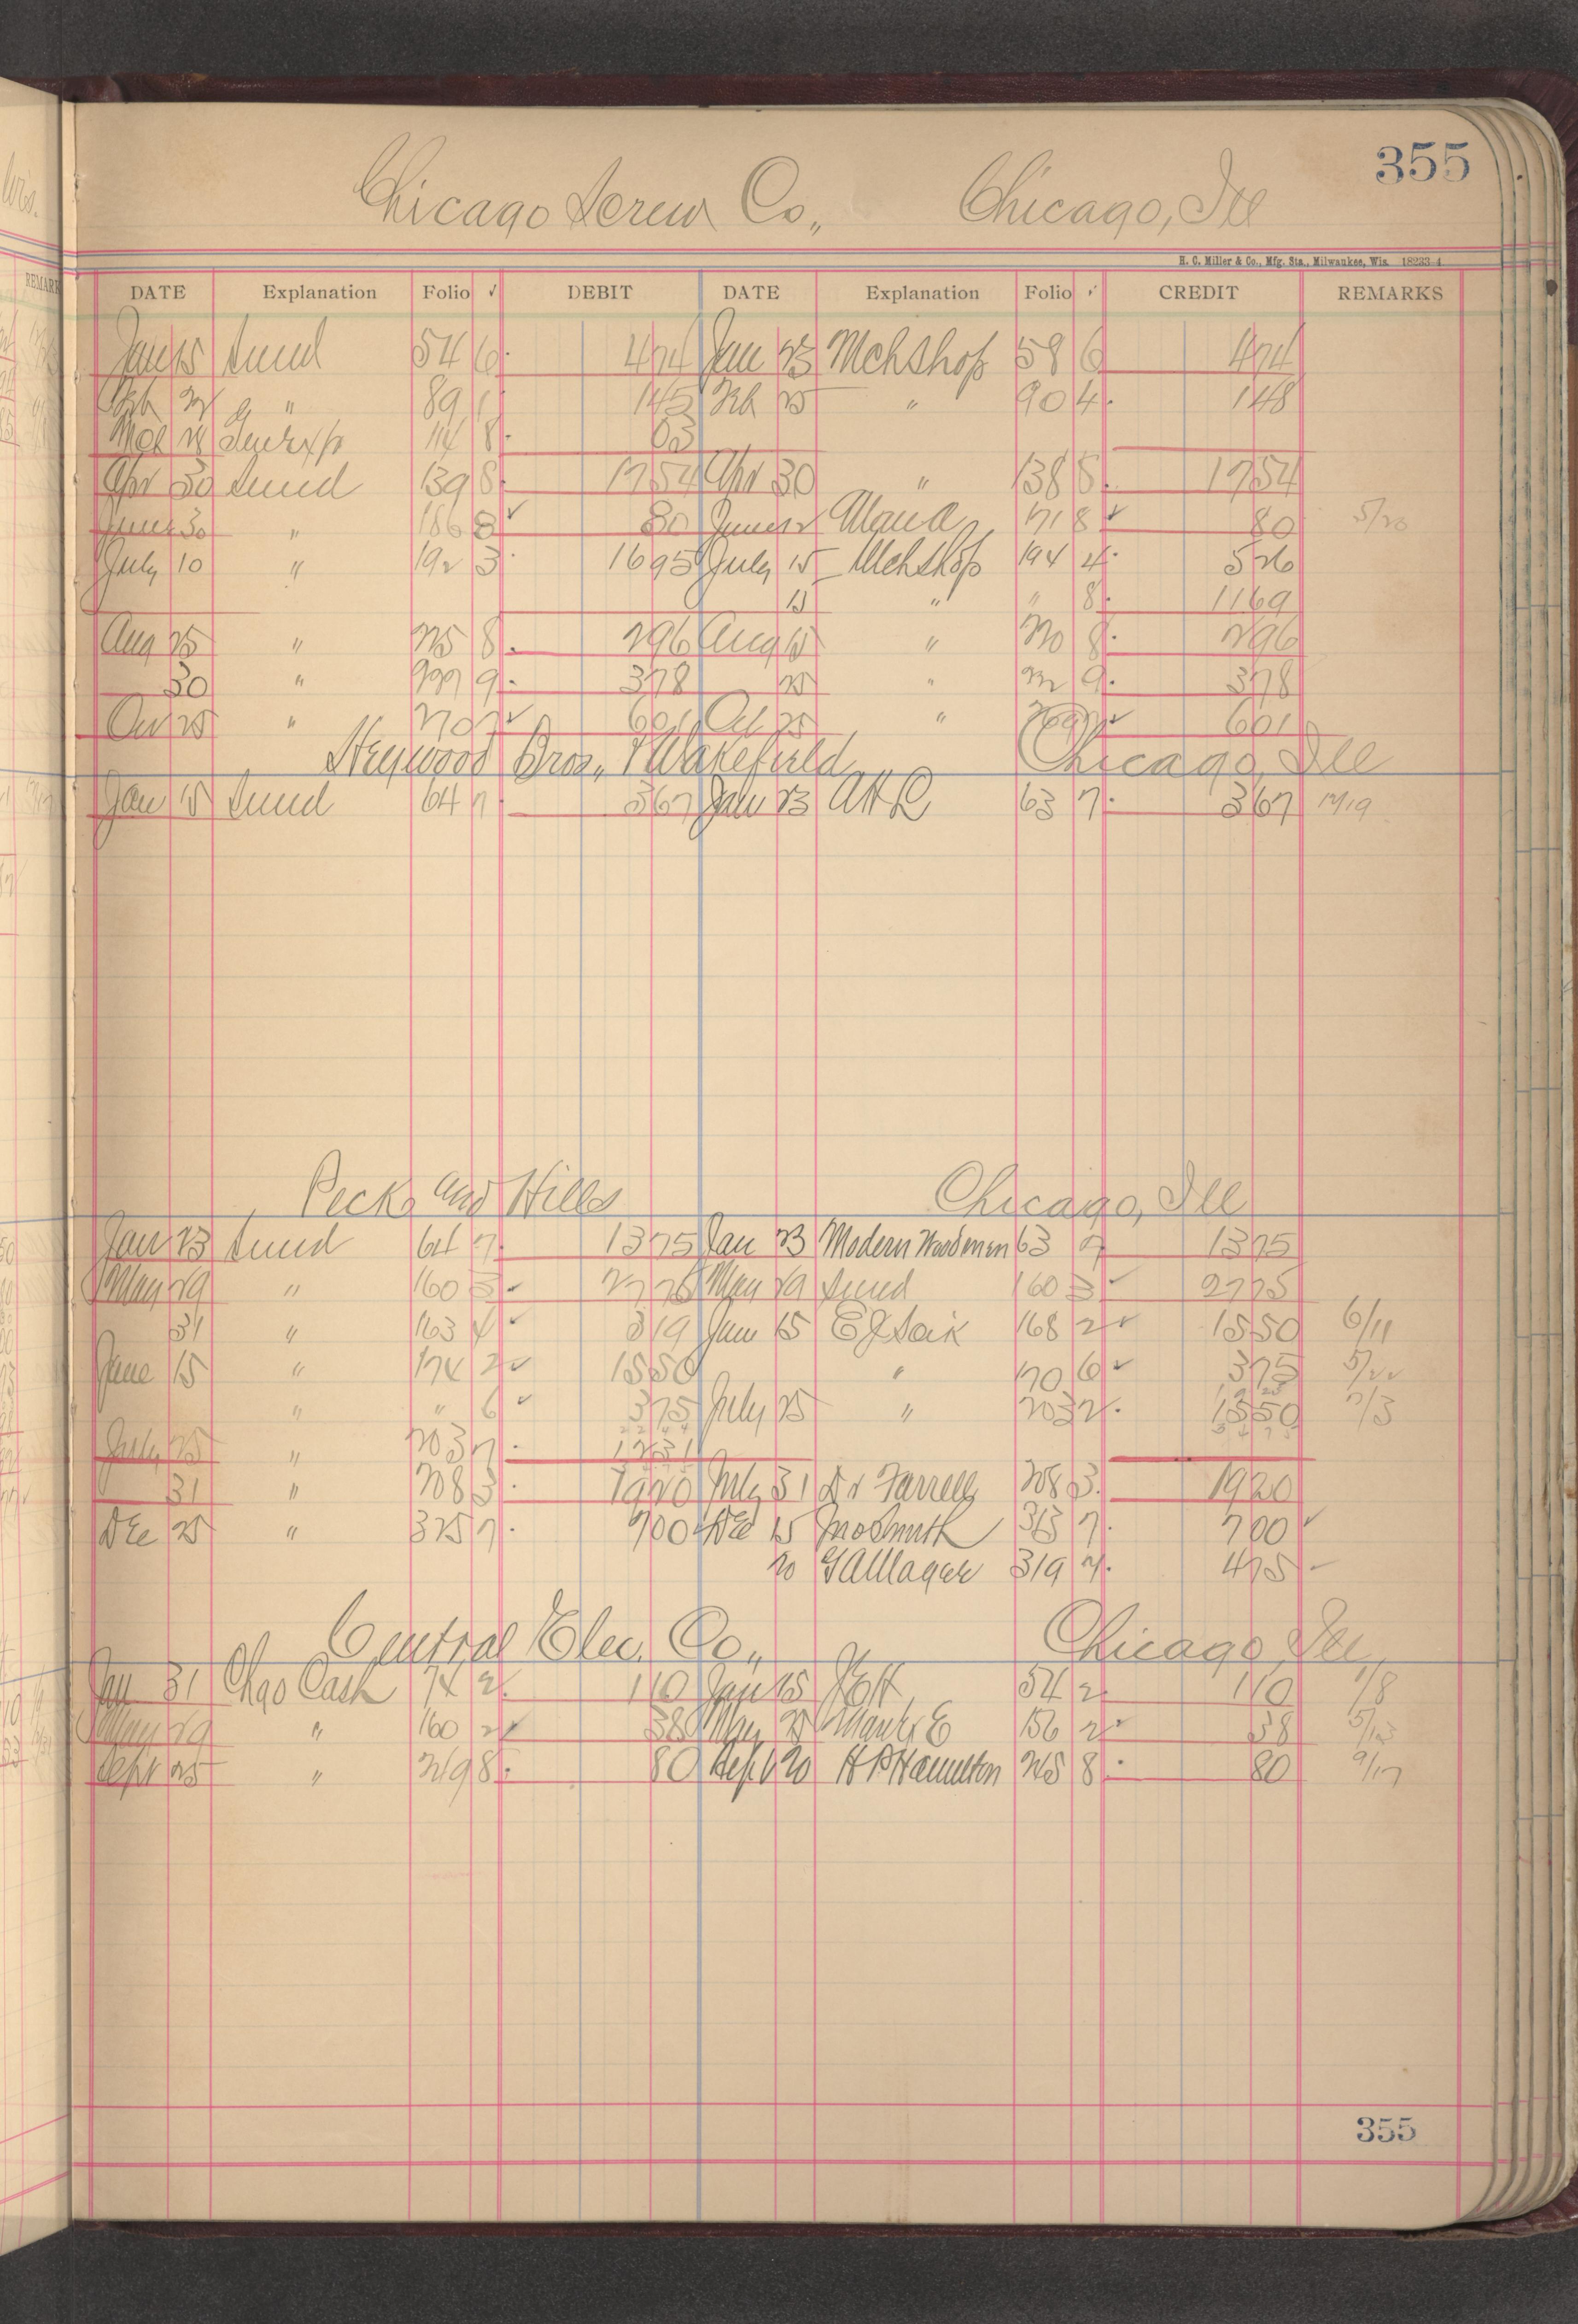 355
Chicago Screw Co., Chicago, Ill
H. C. Miller & Co., Mfg. Sta., Milwaukee, Wis. 18233-4
DATE Explanation Folio ✓ DEBIT DATE Explanation Folio ✓ CREDIT REMARKS
Jan 15 Sund 54 6 474 Jan 23 Mch Shop 58 6 474
Feb 89 1 145 Feb 25 " 90 4 148
Mch 114 8 03
Apr 30 Sund 139 8 1754 Apr 30 " 138 8 1754
June 30 " 186 8 ✓ 80 June 171 8 ✓ 80 5/20
July 10 " 192 3 1695 July 15 Mch Shop 194 4 526
15 " " 8 1169
Aug 25 " 225 8 296 Aug 15 " 220 8 296
30 " 227 9 378 25 " 222 9 378
Oct 25 " 270 2 ✓ 601 Oct 25 " 269 2 ✓ 601
Heywood Bros., & Wakefield Chicago, Ill
Jan 15 Sund 64 7 367 Jan 23 63 7 367 12/19
Peck and Hills Chicago, Ill
Jan 23 Sund 64 7 1375 Jan 23 Modern Woodmen 63 7 1375
May 29 " 160 3 ✓ 2725 May 29 Sund 160 3 ✓ 2725
31 " 163 4 ✓ 319 June 15 168 2 ✓ 1550 6/11
June 15 " 174 2 ✓ 1550 " 170 6 ✓ 375 5/22
" " 6 ✓ 375 July 25 " 203 2 1350 7/3
July 25 " 203 7 1231
31 " 208 3 1920 July 31 Dr Farrell 208 3 1920
Dec 25 " 325 7 700 Dec 15 Jno Smith 313 7 700 ✓
20 319 7 475
Central Elec. Co., Chicago, Ill,
Jan 31 Chgo Cash 74 2 110 Jan 15 54 2 110 1/8
May 29 " 160 2 ✓ 38 May 25 156 2 ✓ 38 5/13
Sept 25 " 249 8 80 Sept 20 H P Hamilton 245 8 80 9/17
355